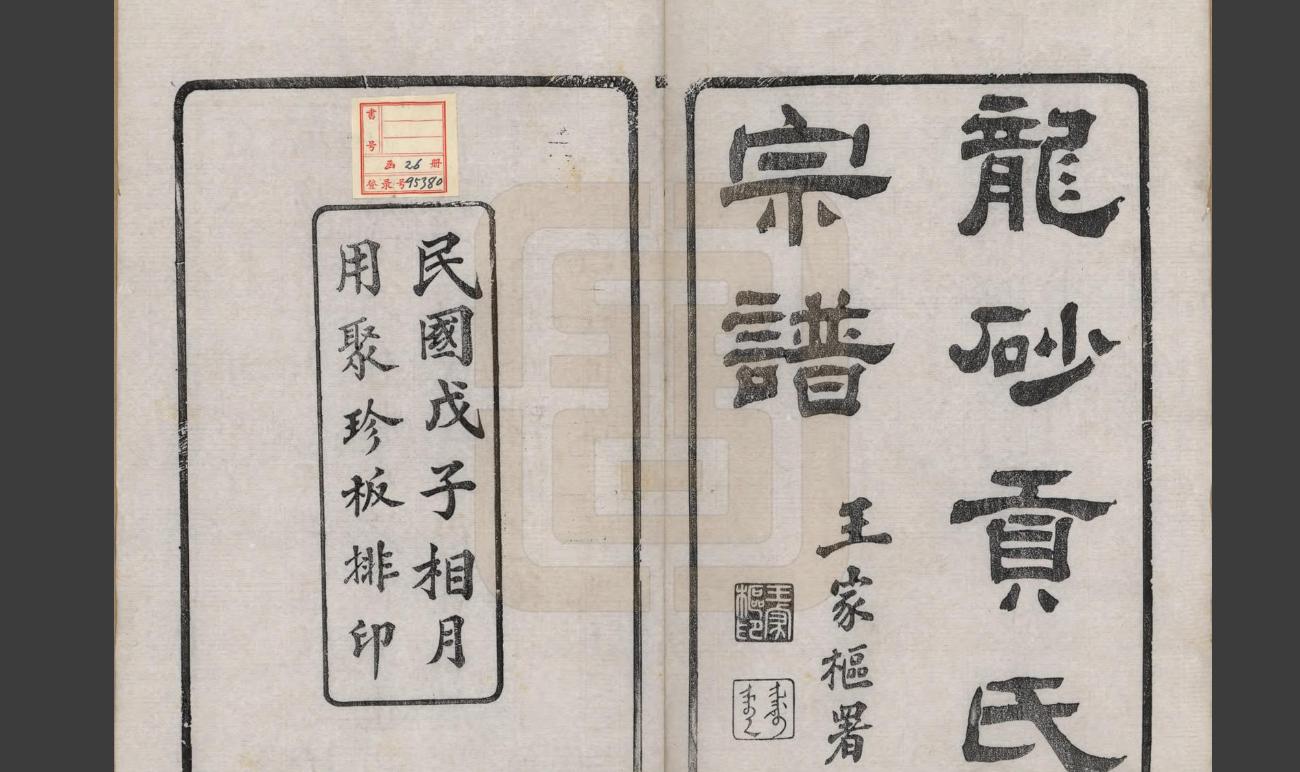 龍砂貢氏
宗譜
王家樞署
王家樞印
民國戊子相月
用聚珍板排印
書號
函 26 册
登录号 95380